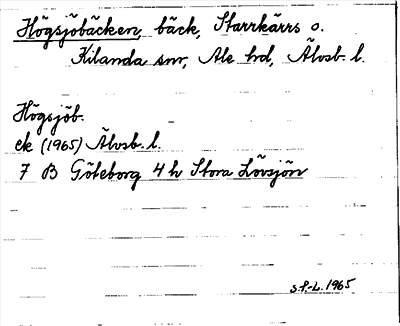 Högsjöbäcken, bäck, Starrkärrs o.
Kilanda snr, Ale hd, Älvsb. l.
Högsjöb.
ek (1965) Älvsb. l.
7 B Göteborg 4 h Stora Lövsjön
S.P.-L. 1965